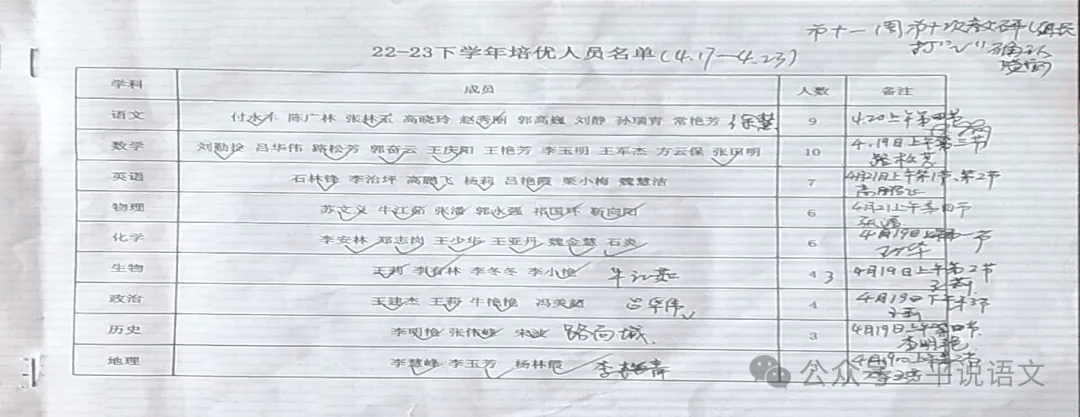 第十一周第十次教研(组长
打"√"确认
22-23下学年培优人员名单(4.17—4.23)
学科 成员 人数 备注
语文 付永丰 陈广林 张林丞 高晓玲 赵秀丽 郭高巍 刘静 孙瑞青 常艳芳 徐慧 9 4.20上午第四节
数学 刘勤拴 吕华伟 路松芳 郭奋云 王庆阳 王艳芳 李玉明 王军杰 方云保 张明明 10 4.19日上午第三节
路松芳
英语 石林锋 李治坪 高鹏飞 杨莉 吕艳霞 栗小梅 魏慧洁 7 4月21日上午第1节、第2节
高鹏飞
物理 苏文义 牛江茹 张潘 郭永强 祁国环 靳向阳 6 4月21上午第四节
张潘
化学 李安林 郑志岗 王少华 王亚丹 魏金慧 石炎 6 4月19日上午第一节
生物 王莉 李有林 李冬冬 李小艳 牛江茹 4 3 4月19日上午第2节
王莉
政治 王建杰 王莉 牛艳艳 冯奕超 吕华伟 4 4月19日下午第3节
王莉
历史 李明艳 张伟峰 宋波 路向城 3 4月19日上午第四节
李明艳
地理 李慧峰 李玉芳 杨林霞 4月19日上午
李玉芳
公众号·平说语文